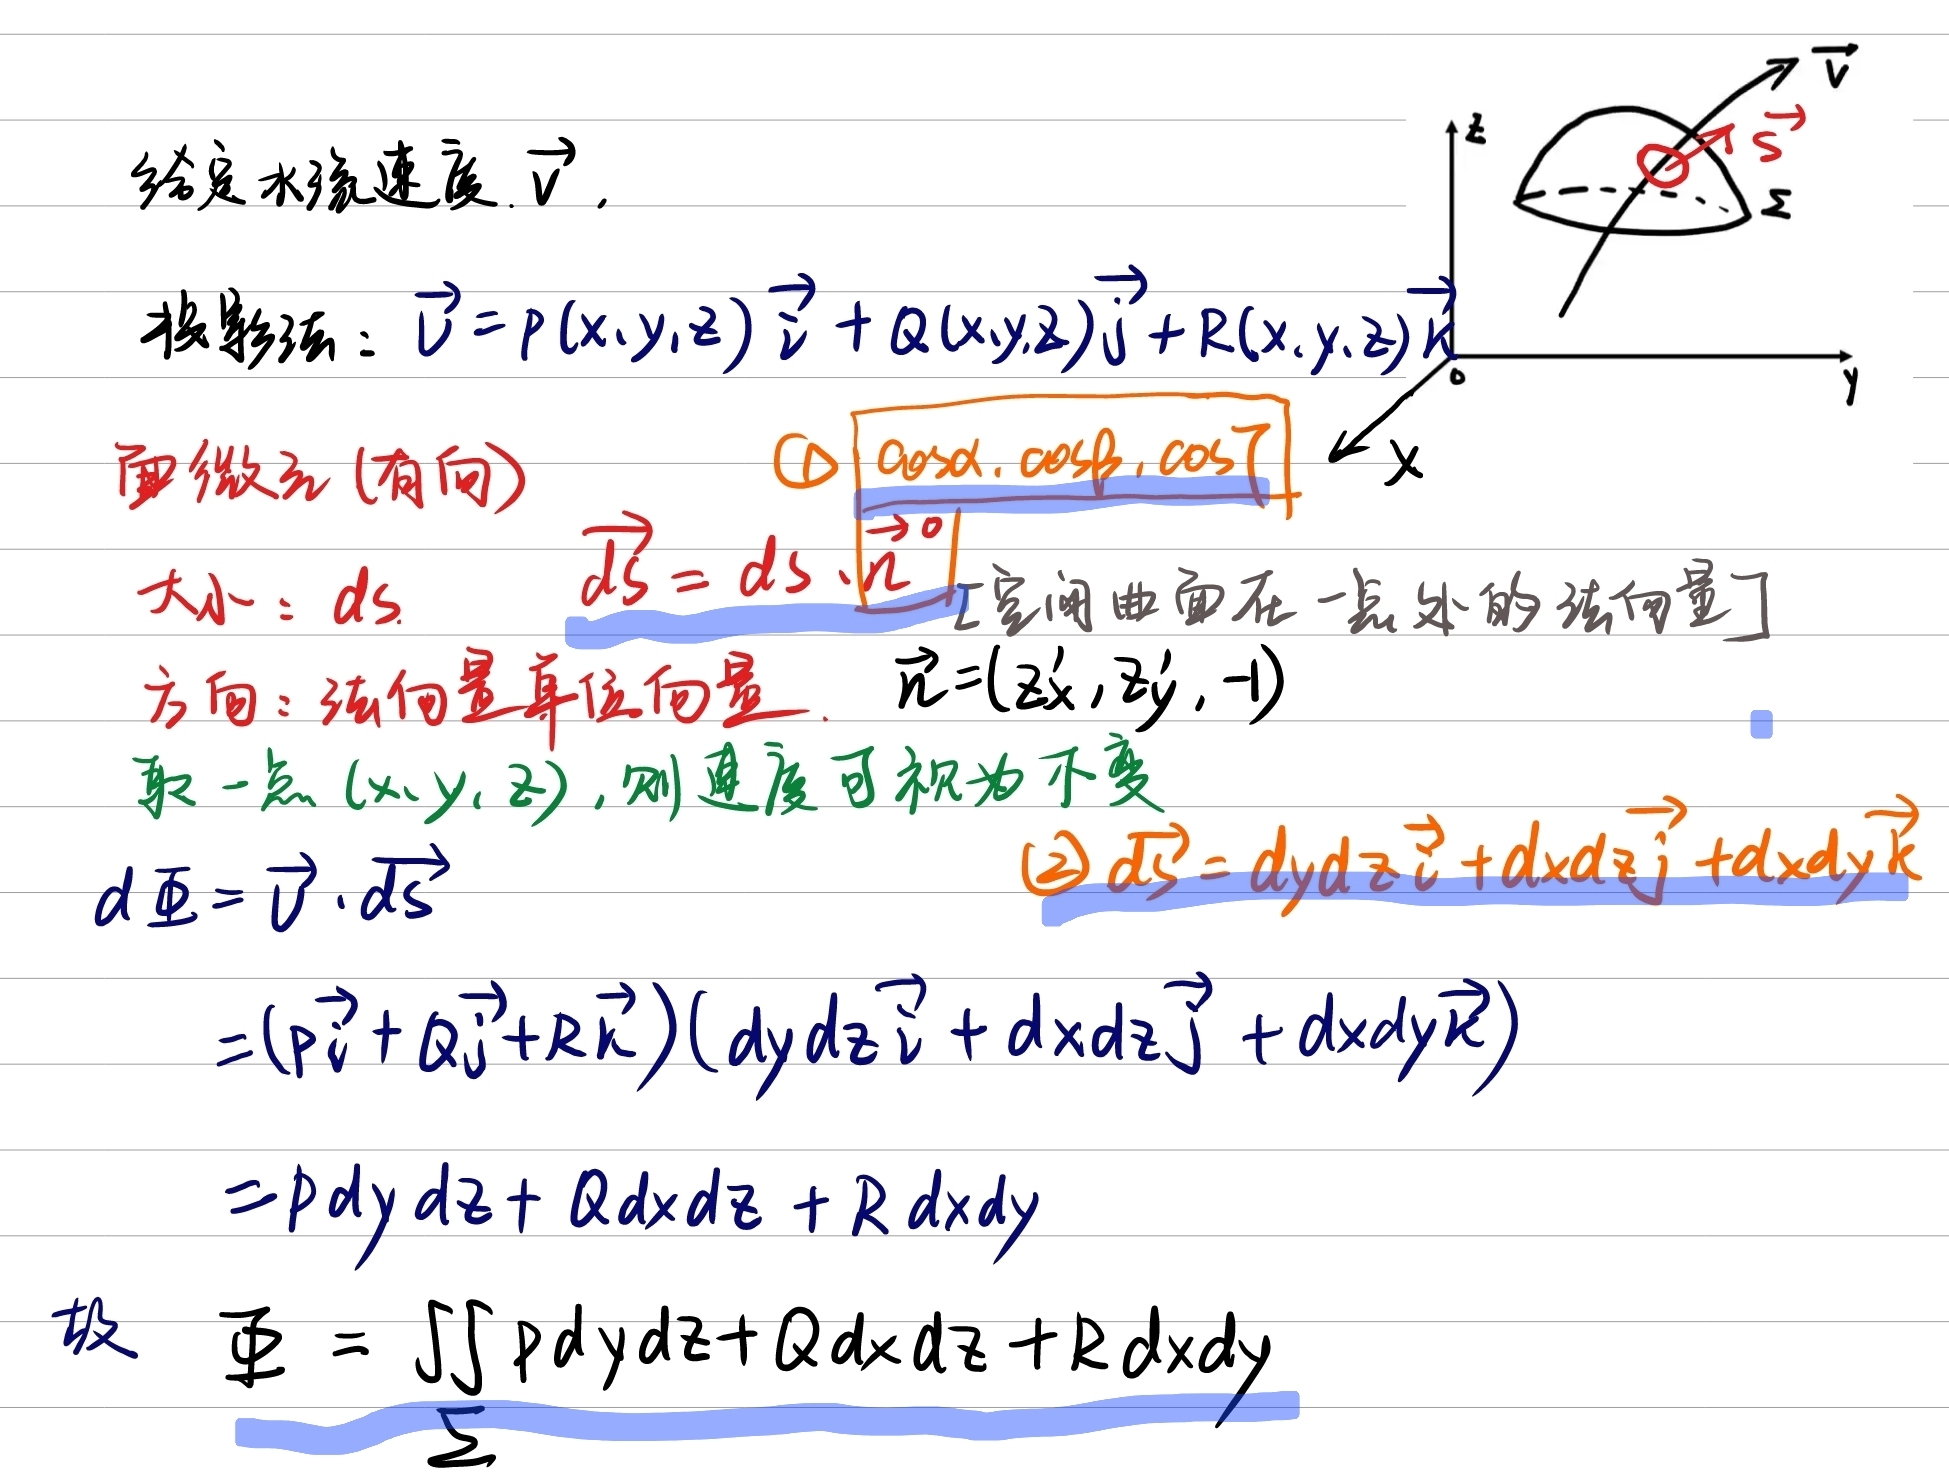 给定水流速度.v⃗,
投影法: v⃗=P(x,y,z)i⃗+Q(x,y,z)j⃗+R(x,y,z)k⃗
z
v⃗
s⃗
Σ
o
y
x
面微元(有向)
① cosα.cosβ,cosγ
大小: ds.
ds⃗=ds·n⃗⁰
[空间曲面在一点处的法向量]
方向: 法向量单位向量.
n⃗=(z'x,z'y,-1)
取一点(x,y,z),则速度可视为不变
② ds⃗=dydzi⃗+dxdzj⃗+dxdyk⃗
dΦ=v⃗·ds⃗
=(Pi⃗+Qj⃗+Rk⃗)(dydzi⃗+dxdzj⃗+dxdyk⃗)
=Pdydz+Qdxdz+Rdxdy
故 Φ=∬Pdydz+Qdxdz+Rdxdy
Σ